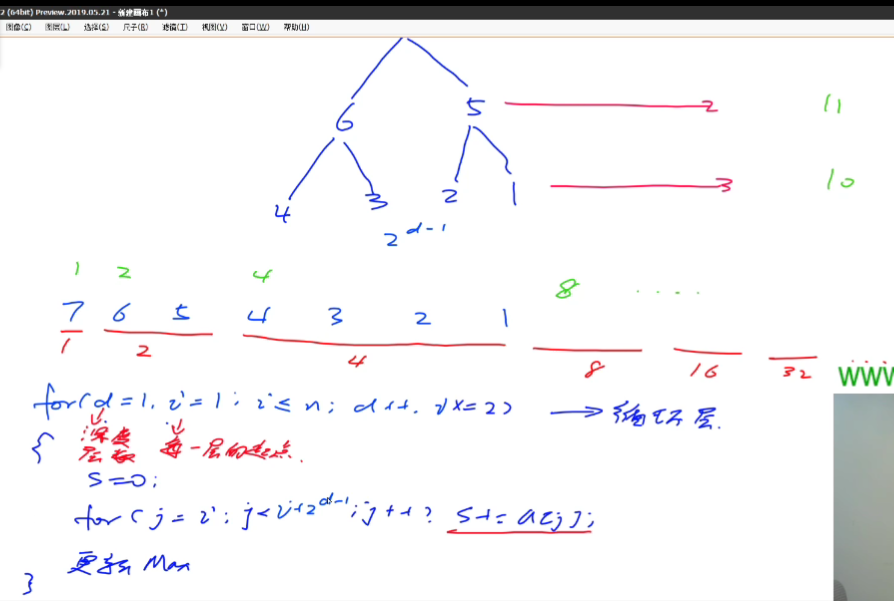 2 (64bit) Preview.2019.05.21 - 新建画布1 (*)
图像(C) 图层(L) 选择(S) 尺子(R) 滤镜(T) 视图(V) 窗口(W) 帮助(H)
6 5 2 11
4 3 2 1 3 10
2^d-1
1 2 4 8 ·····
7 6 5 4 3 2 1
1 2 4 8 16 32
www
for(d=1, i=1; i≤n; d++, i×=2) → 循环层.
{ 深度 层数 每一层的起点.
s=0;
for(j=i; j<i+2^d-1; j++) s+=a[j];
更新Max
}